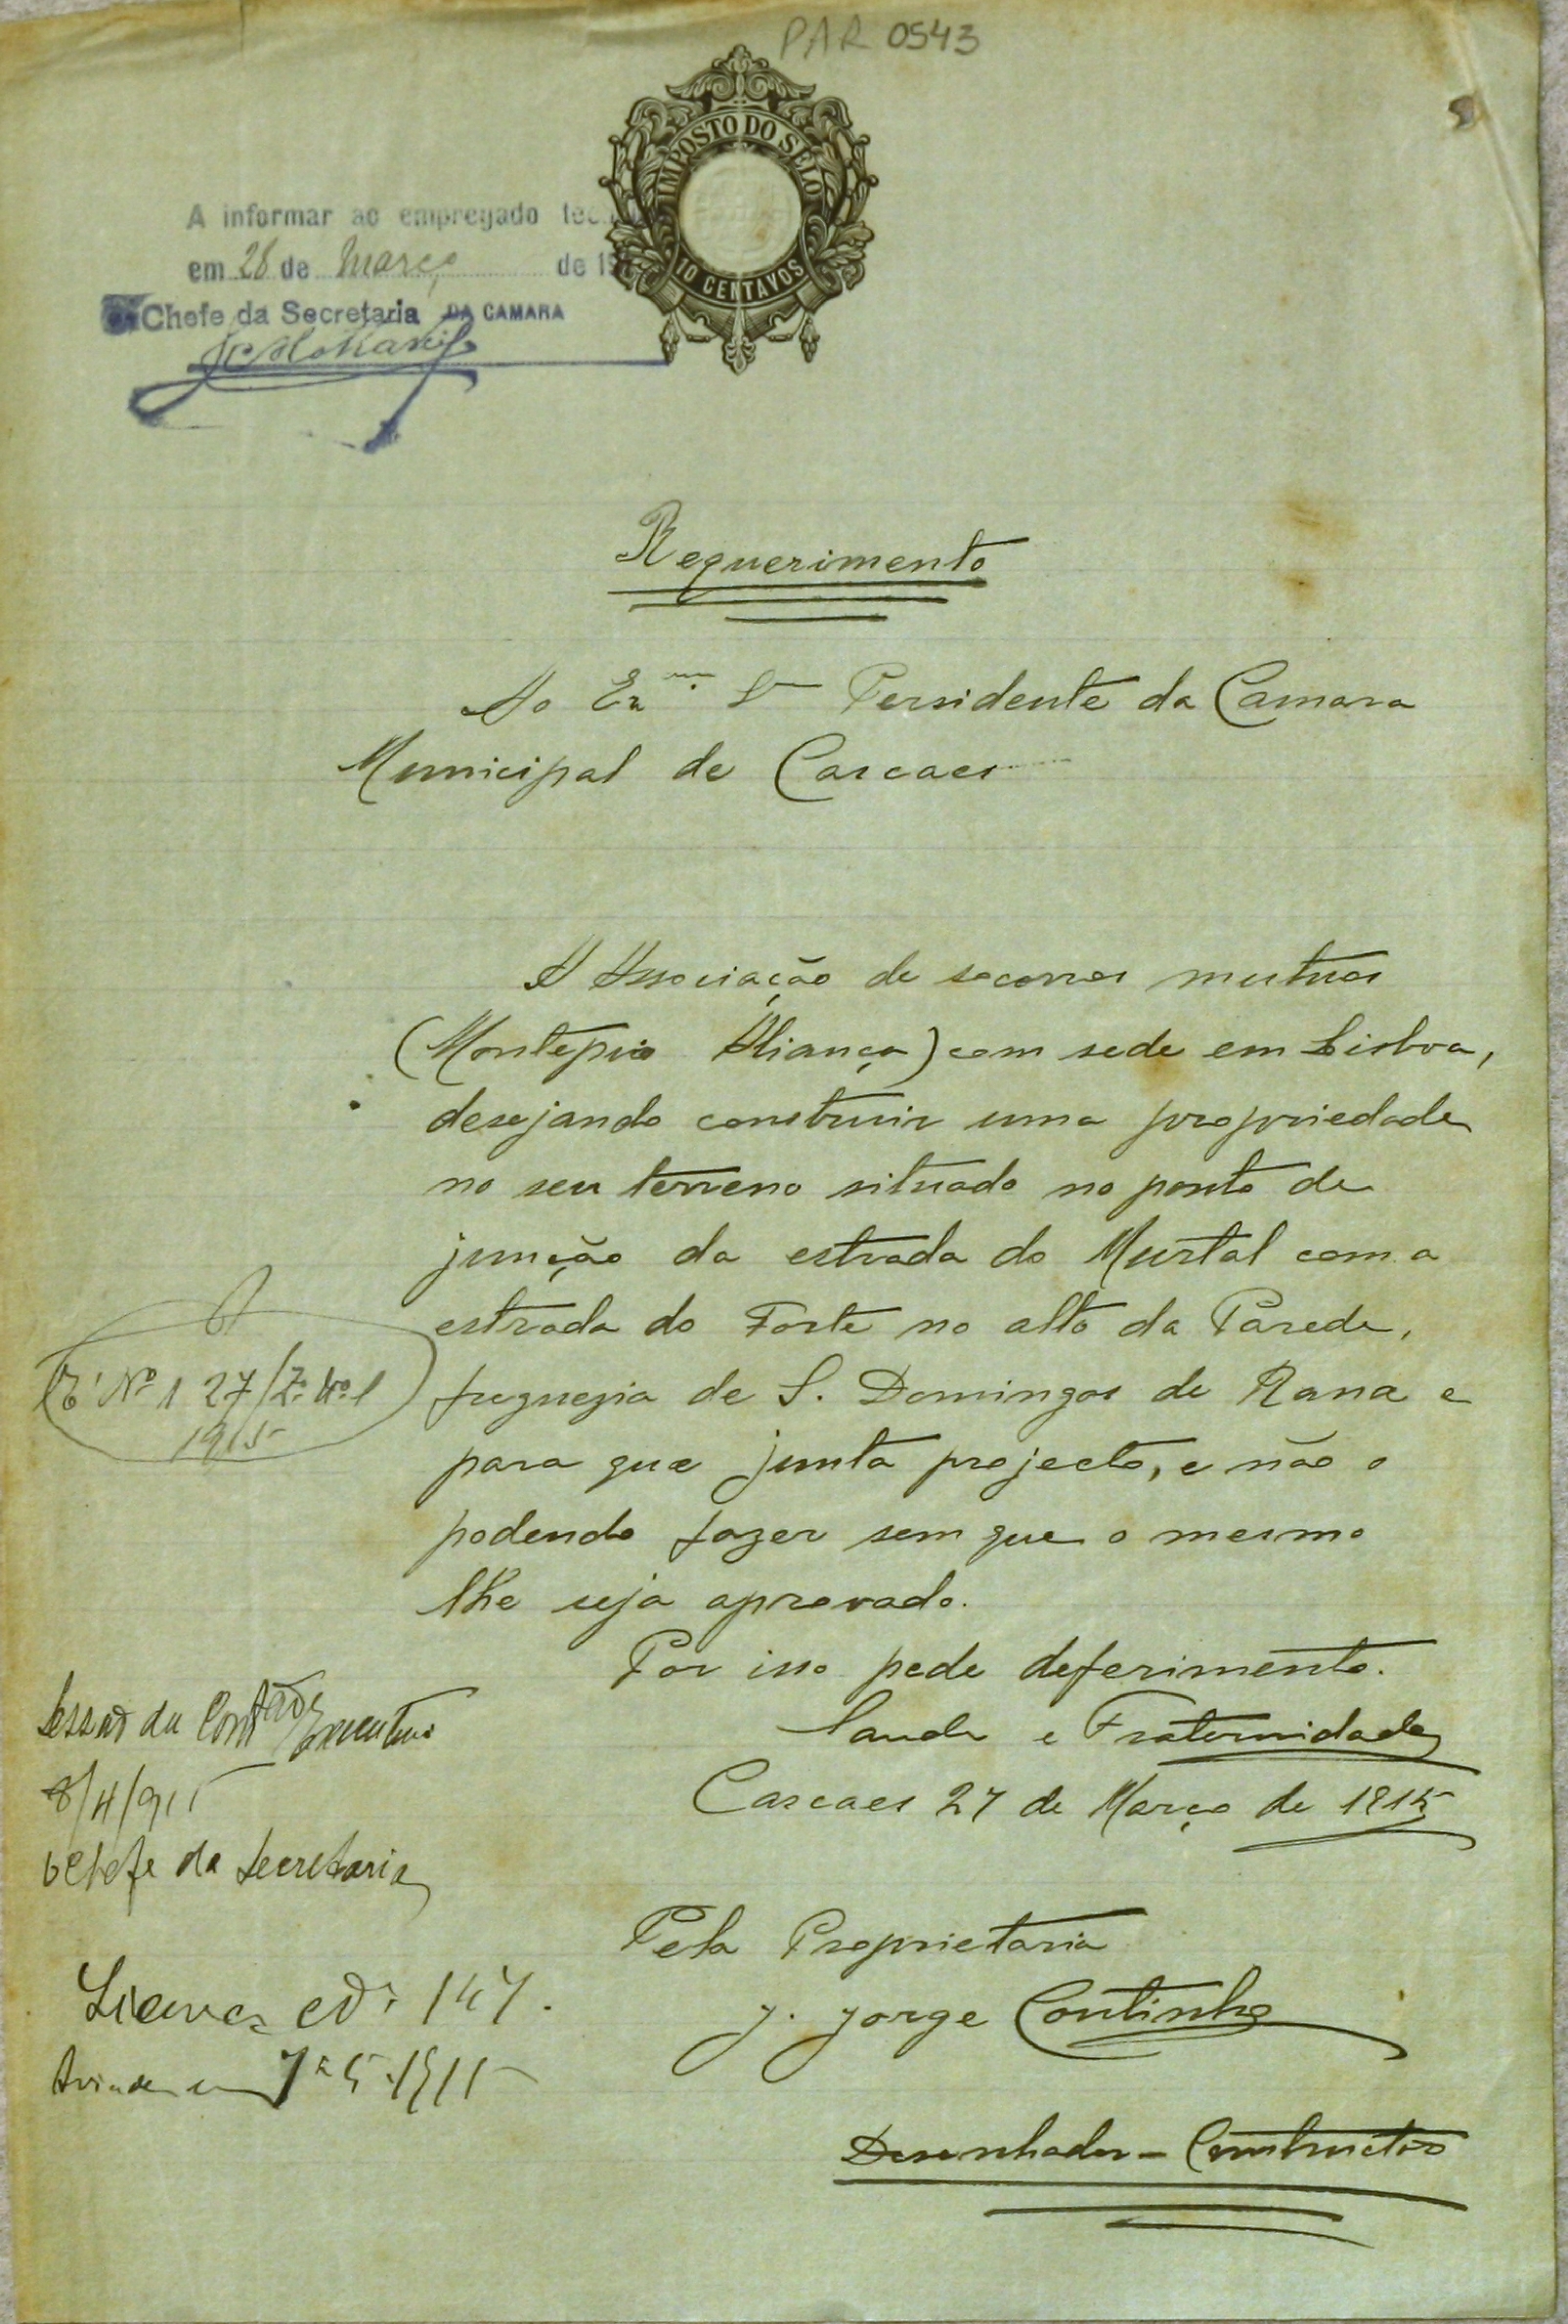 PAR 0543
IMPOSTO DO SELO
10 CENTAVOS
A informar ao empregado
em 28 de Março de 191
Chefe da Secretaria DA CAMARA
Requerimento
Ao Exmo. Sr Persidente da Camara
Municipal de Cascaes
A Associação de socorros mutuos
(Montepio Aliança) com sede em Lisboa,
desejando construir uma propriedade
no seu terreno situado no ponto de
junção da estrada do Murtal com a
estrada do Forte no alto da Parede,
freguezia de S. Domingos de Rana e
para que junta projecto, e não o
podendo fazer sem que o mesmo
lhe seja aprovado.
Por isso pede deferimento.
Saude e Fraternidade
Cascaes 27 de Março de 1915
Pela Proprietaria
J. Jorge Coutinho
Desenhador - Constructor
Nº 1 27
1915
Sessão da Executiva
8/4/915
O Chefe da Secretaria
Licença 147.